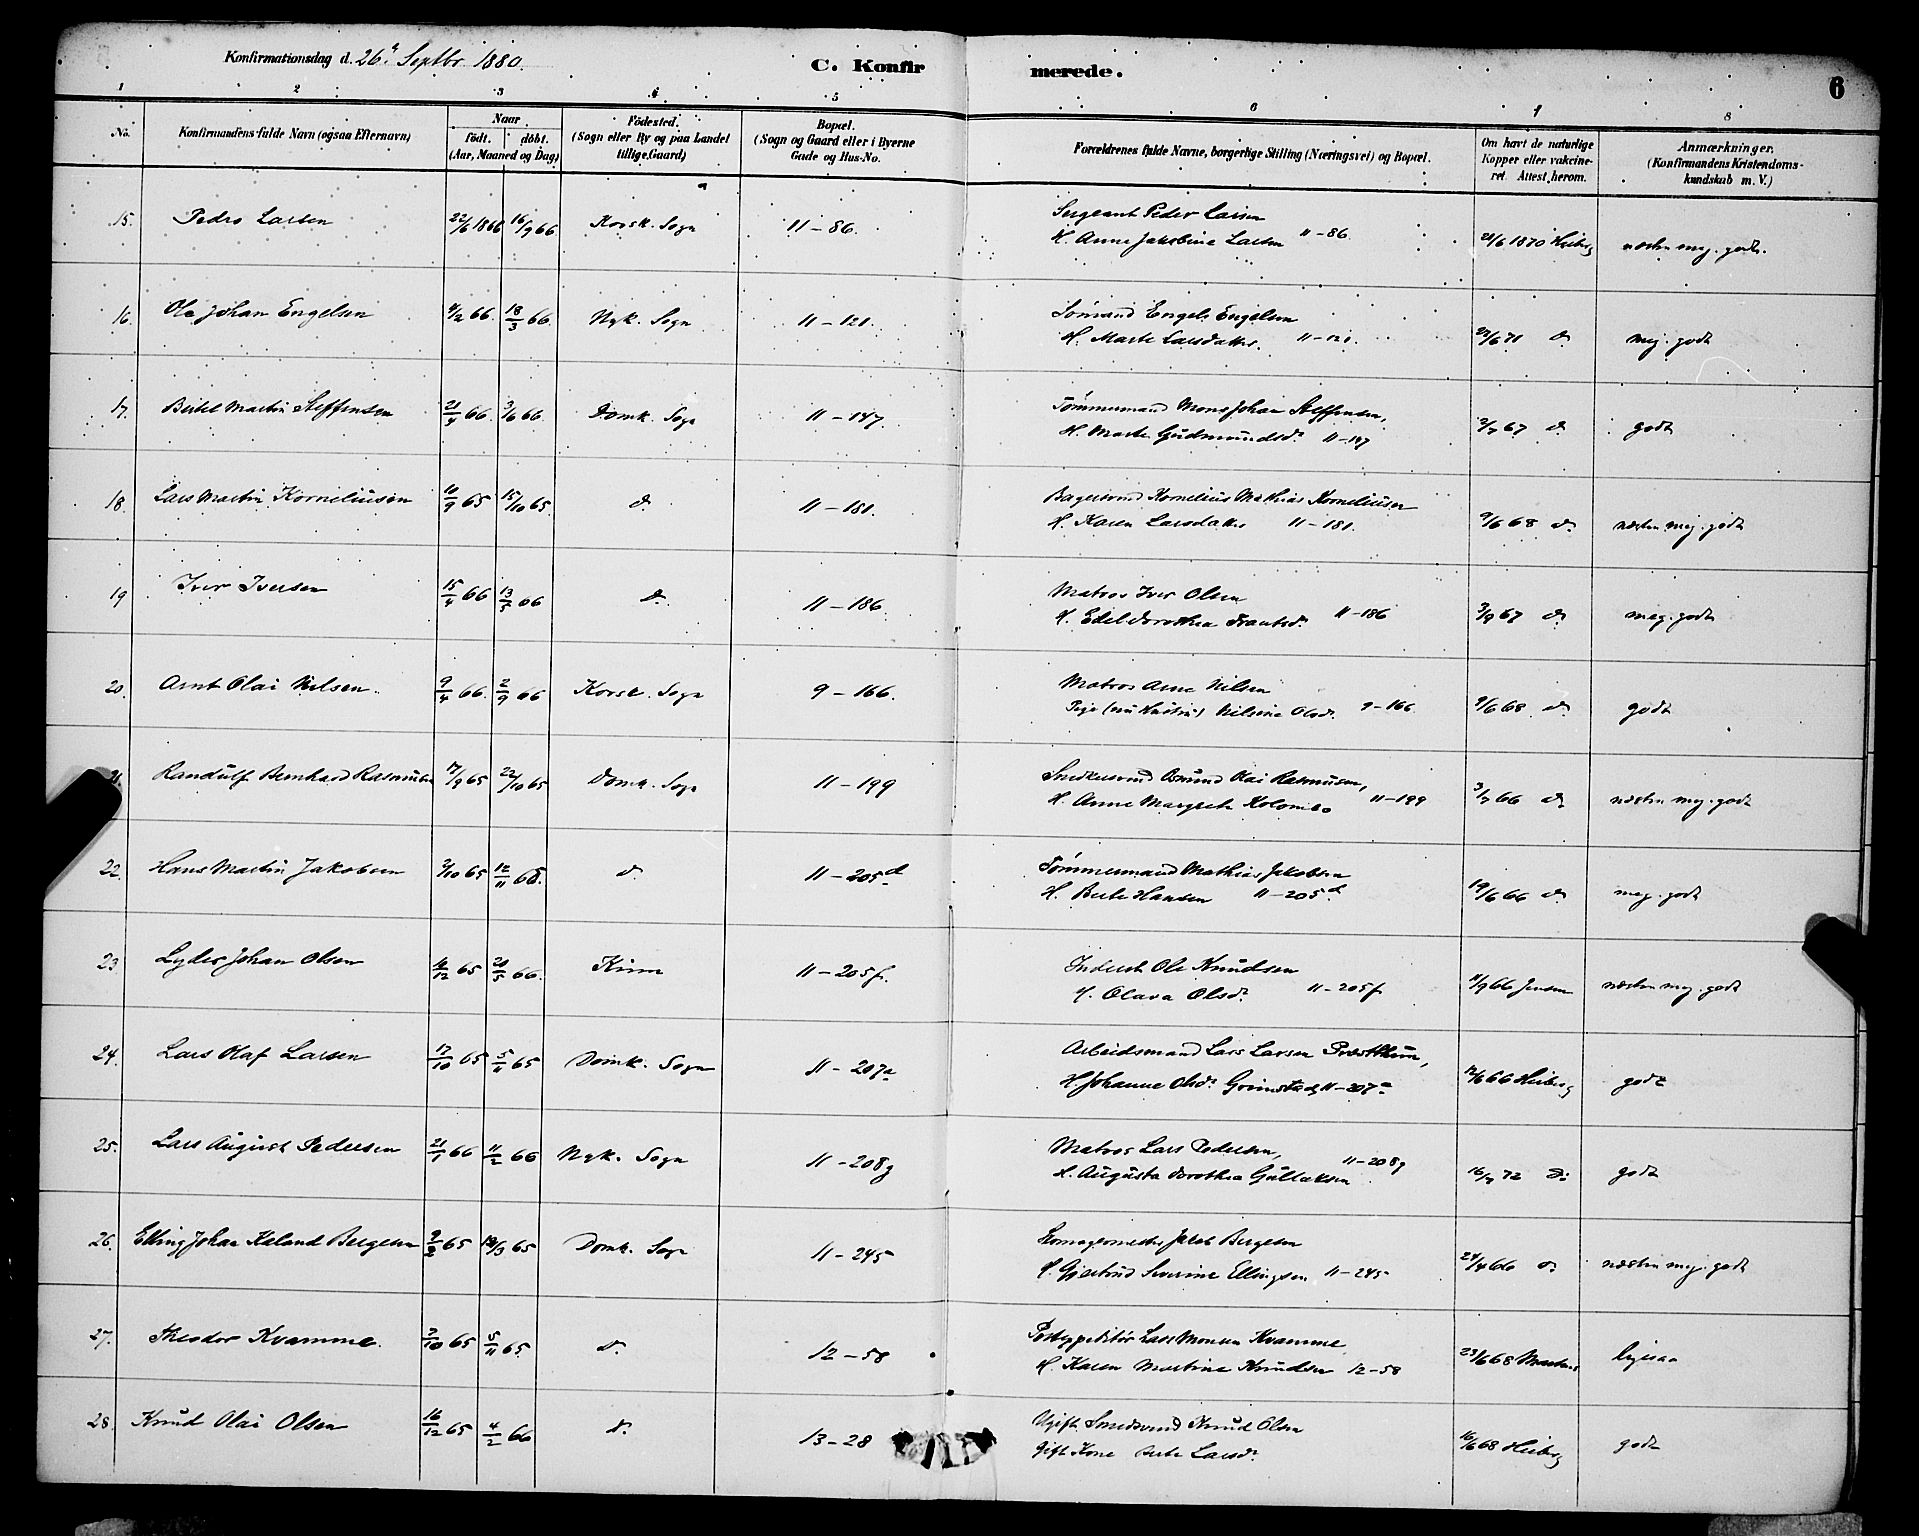 Konfirmationsdag d. 26de Septbr 1880.
C. Konfirmerede.
6
1 2 3 4 5 6 7 8
No. Konfirmandens fulde Navn (ogsaa Efternavn) Naar födt. döbt. (Aar, Maaned og Dag) Födested. (Sogn eller By og paa Landet tillige Gaard) Bopæl. (Sogn og Gaard eller i Byerne Gade og Hus-No. Forældrenes fulde Navne, borgerlige Stilling (Næringsvei) og Bopæl. Om havt de naturlige Kopper eller vakcineret. Attest herom. Anmærkninger. (Konfirmandens Kristendomskundskab m.V.)
15. Pedro Larsen 22/6 1866 16/9 66 Korsk. Sogn 11-86. Sergeant Peder Larsen
H. Anne Jakobine Larsen 11-86. 21/6 1870 Heiberg næsten meg. godt.
16. Ole Johan Engelsen 4/2 66. 18/3 66. Nyk. Sogn 11-121. Sömand Engel Engelsen
H. Marte Larsdatter. 11-121. 22/6 71 do meg. godt
17. Bertel Martin Steffensen 21/4 66. 3/6 66. Domk. Sogn 11-147. Tömmermand Mons Johan Steffensen,
H. Marte Gudmundsdr 11-147 2/7 67 do godt
18. Lars Martin Korneliusen 10/9 65 15/10 65. do 11-181. Bagersvend Kornelius Mathias Korneliusen
H. Karen Larsdatter 11-181. 9/6 68 do næsten meg. godt
19 Iver Iversen 15/4 66 13/5 66 do 11-186. Matros Iver Olsen
H. Edel Dorothea Frantsdr 11-186 3/9 67 do meg. godt
20. Arnt Olai Nilsen. 9/4 66. 2/9 66 Korsk. Sogn 9-166. Matros Arne Nilsen
Pige (nu Hustru) Nilsine Olsdr. 9-166 9/6 68 do godt
21. Randulf Bernhard Rasmussen 17/9 65 22/10 65 Domk. Sogn 11-199 Snedkersvend Osmund Olai Rasmusen,
H. Anne Margrete 11-199 3/7 66 do næsten meg. godt
22. Hans Martin Jakobsen 2/10 65 12/11 65. do 11-205d Tömmermand Mathias Jakobsen
H. Berte Hansen 11-205d 19/6 66 do meg. godt
23. Lyder Johan Olsen 14/12 65 21/5 66. Kinn 11-205f. Inderst Ole Knudsen
H. Olava Olsdr. 11-205f 11/9 66 Jensen næsten meg. godt
24. Lars Olaf Larsen 17/10 65 5/11 65 Domk. Sogn 11-207a Arbeidsmand Lars Larsen Præsthun,
H Johanne Olsdr Grimstad, 11-207a 12/6 66 Heiberg godt
25. Lars August Pedersen 21/1 66 11/2 66 Nyk. Sogn 11-208g Matros Lars Pedersen,
H. Augusta Dorothea Gullaksen 11-208g 16/7 72 do godt
26. Elling Johan Kaland Bergesen 2/2 65 19/3 65 Domk. Sogn 11-245 Skomagermester Jakob Bergesen
H. Gjertrud Severine Ellingsen 11-245 24/4 66 do næsten meg. godt
27. Theodor Kvamme. 3/10 65 5/11 65 do 12-58 Postexpeditör Lars Monsen Kvamme
H. Karen Martine Knudsen 12-58 23/6 68 Martens ligesaa
28. Knud Olai Olsen 16/12 65 4/2 66 do 13-28 Ugift Smedsvend Knud Olsen
gift Kone Berte Larsdr. 16/6 68 Heiberg godt